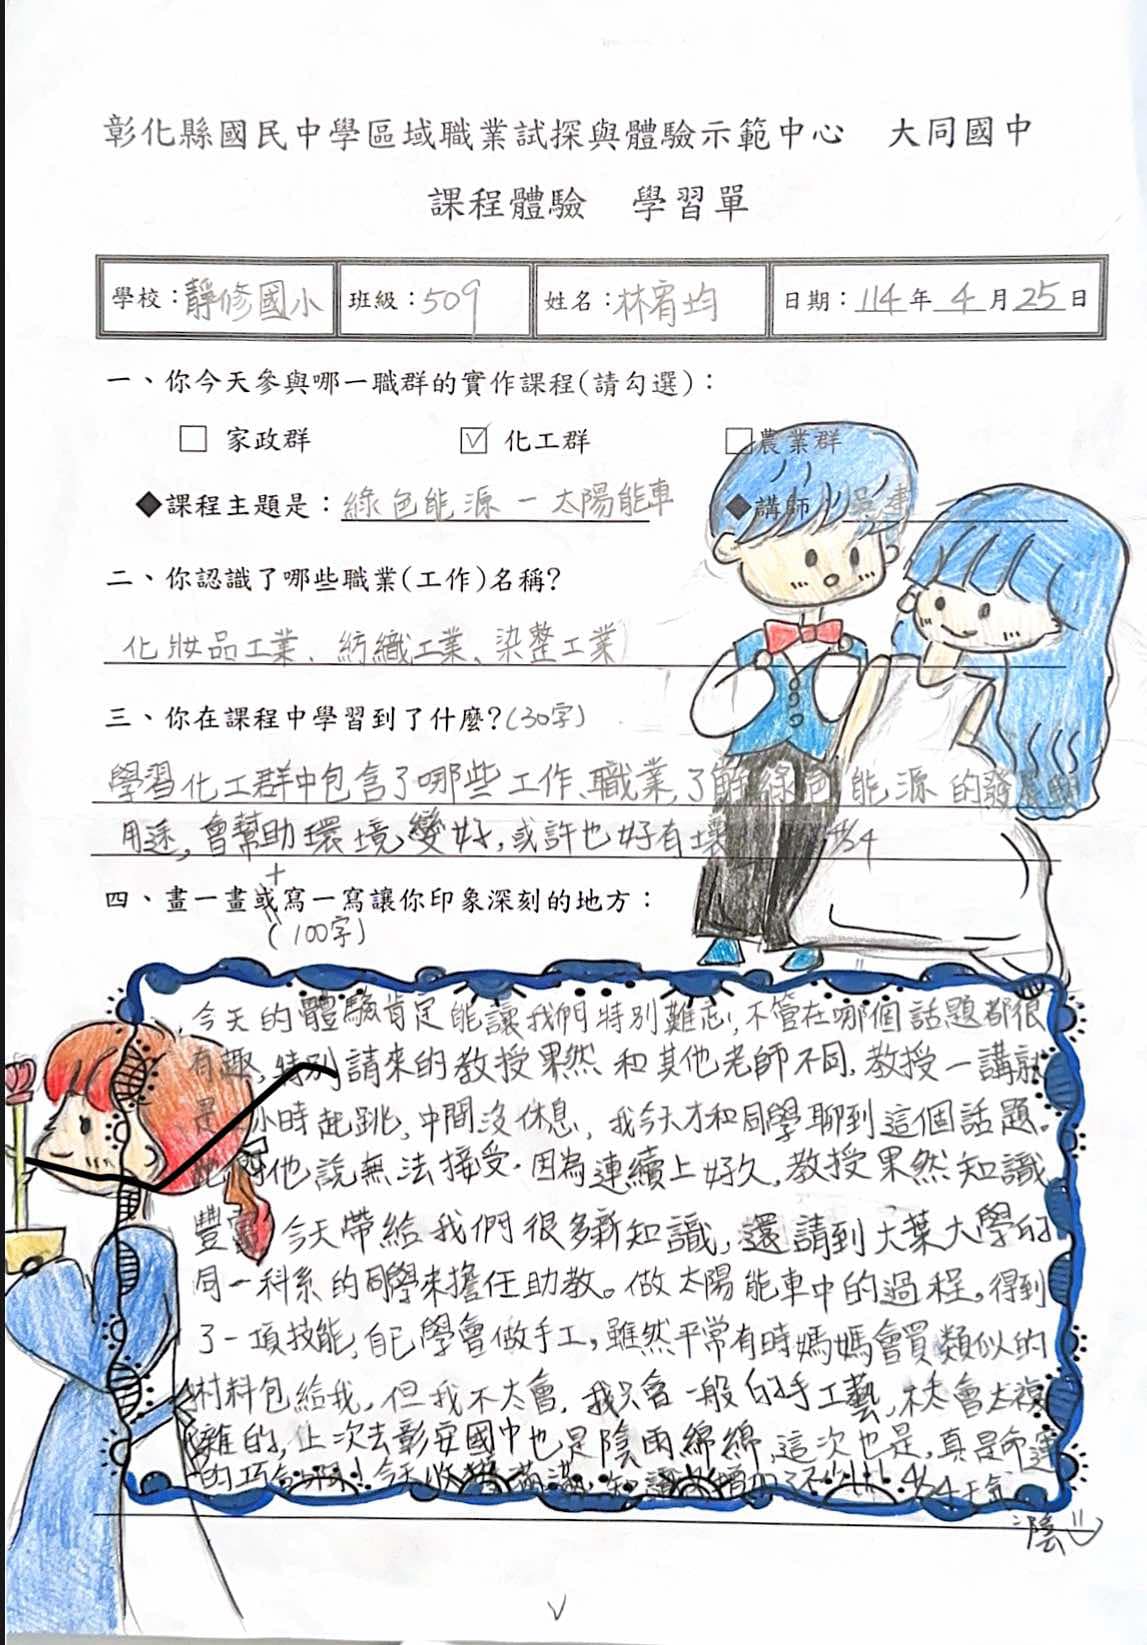 彰化縣國民中學區域職業試探與體驗示範中心 大同國中
課程體驗 學習單
學校：靜修國小 班級：509 姓名：林宥均 日期：114年4月25日
一、你今天參與哪一職群的實作課程(請勾選)：
□ 家政群 ☑ 化工群 □ 農業群
◆課程主題是：綠色能源－太陽能車 ◆講師：吳建
二、你認識了哪些職業(工作)名稱?
化妝品工業、紡織工業、染整工業
三、你在課程中學習到了什麼?(30字)
學習化工群中包含了哪些工作、職業,了解綠色能源的發展與
用途,會幫助環境變好,或許也好有壞
四、畫一畫或寫一寫讓你印象深刻的地方：
+
(100字)
今天的體驗肯定能讓我們特別難忘,不管在哪個話題都很
有趣,特別請來的教授果然和其他老師不同,教授一講就
是 小時起跳,中間沒休息,我今天才和同學聊到這個話題。
他說無法接受.因為連續上好久,教授果然知識
豐富,今天帶給我們很多新知識,還請到大葉大學的
同一科系的同學來擔任助教。做太陽能車中的過程。得到
了一項技能,自己學會做手工。雖然平常有時媽媽會買類似的
材料包給我,但我不太會,我只會一般的手工藝,不太會太複
雜的,上次去彰安國中也是陰雨綿綿,這次也是,真是命運
的巧合啊!今天收穫滿滿,知識增加了不少!
陰